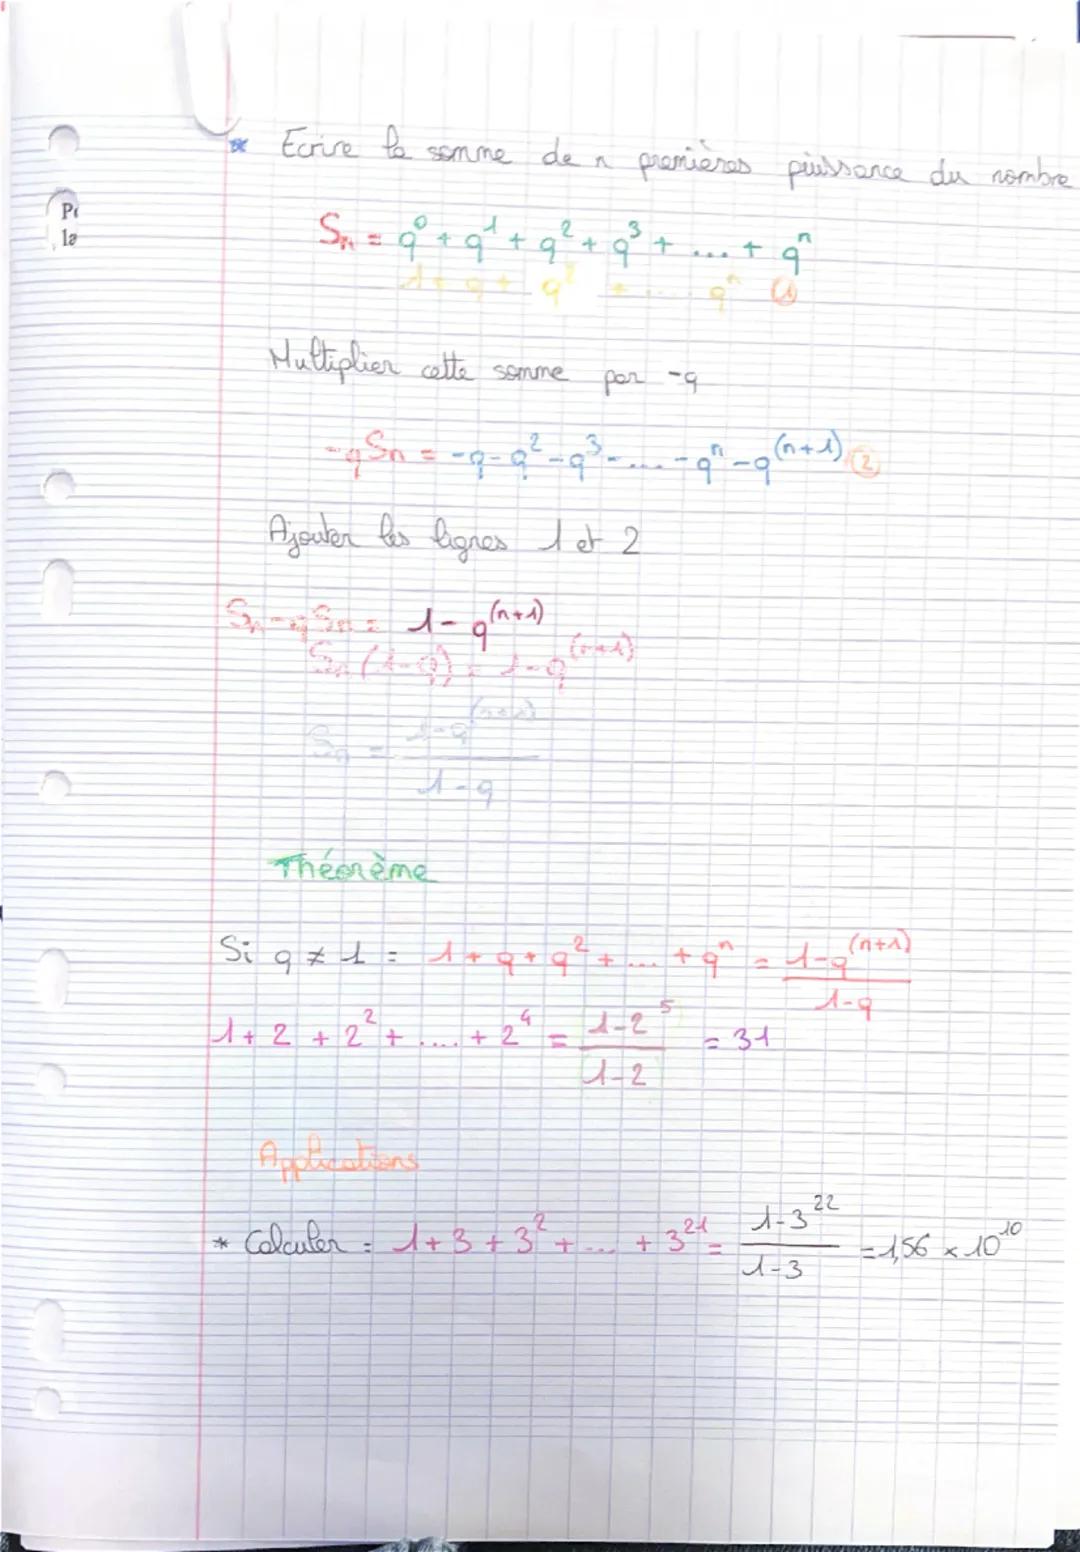 * Ecrire la somme de n premières puissance du nombre
P
la
Sn = q⁰ + q¹ + q² + q³ + ... + qⁿ
1 + q + q² + .... qⁿ (1)
Multiplier cette somme par -q
-qSn = -q - q² - q³ - .... - qⁿ - q⁽ⁿ⁺¹⁾ (2)
Ajouter les lignes 1 et 2
Sn - qSn = 1 - q⁽ⁿ⁺¹⁾
Sn (1-q) = 1 - q⁽ⁿ⁺¹⁾
Sn = (1-q⁽ⁿ⁺¹⁾)/(1-q)
Théorème
Si q ≠ 1 = 1 + q + q² + .... + qⁿ = (1-q⁽ⁿ⁺¹⁾)/(1-q)
1 + 2 + 2² + .... + 2⁴ = (1-2⁵)/(1-2) = 31
Applications
* Calculer = 1 + 3 + 3² + ... + 3²¹ = (1-3²²)/(1-3) = 1,56 × 10¹⁰